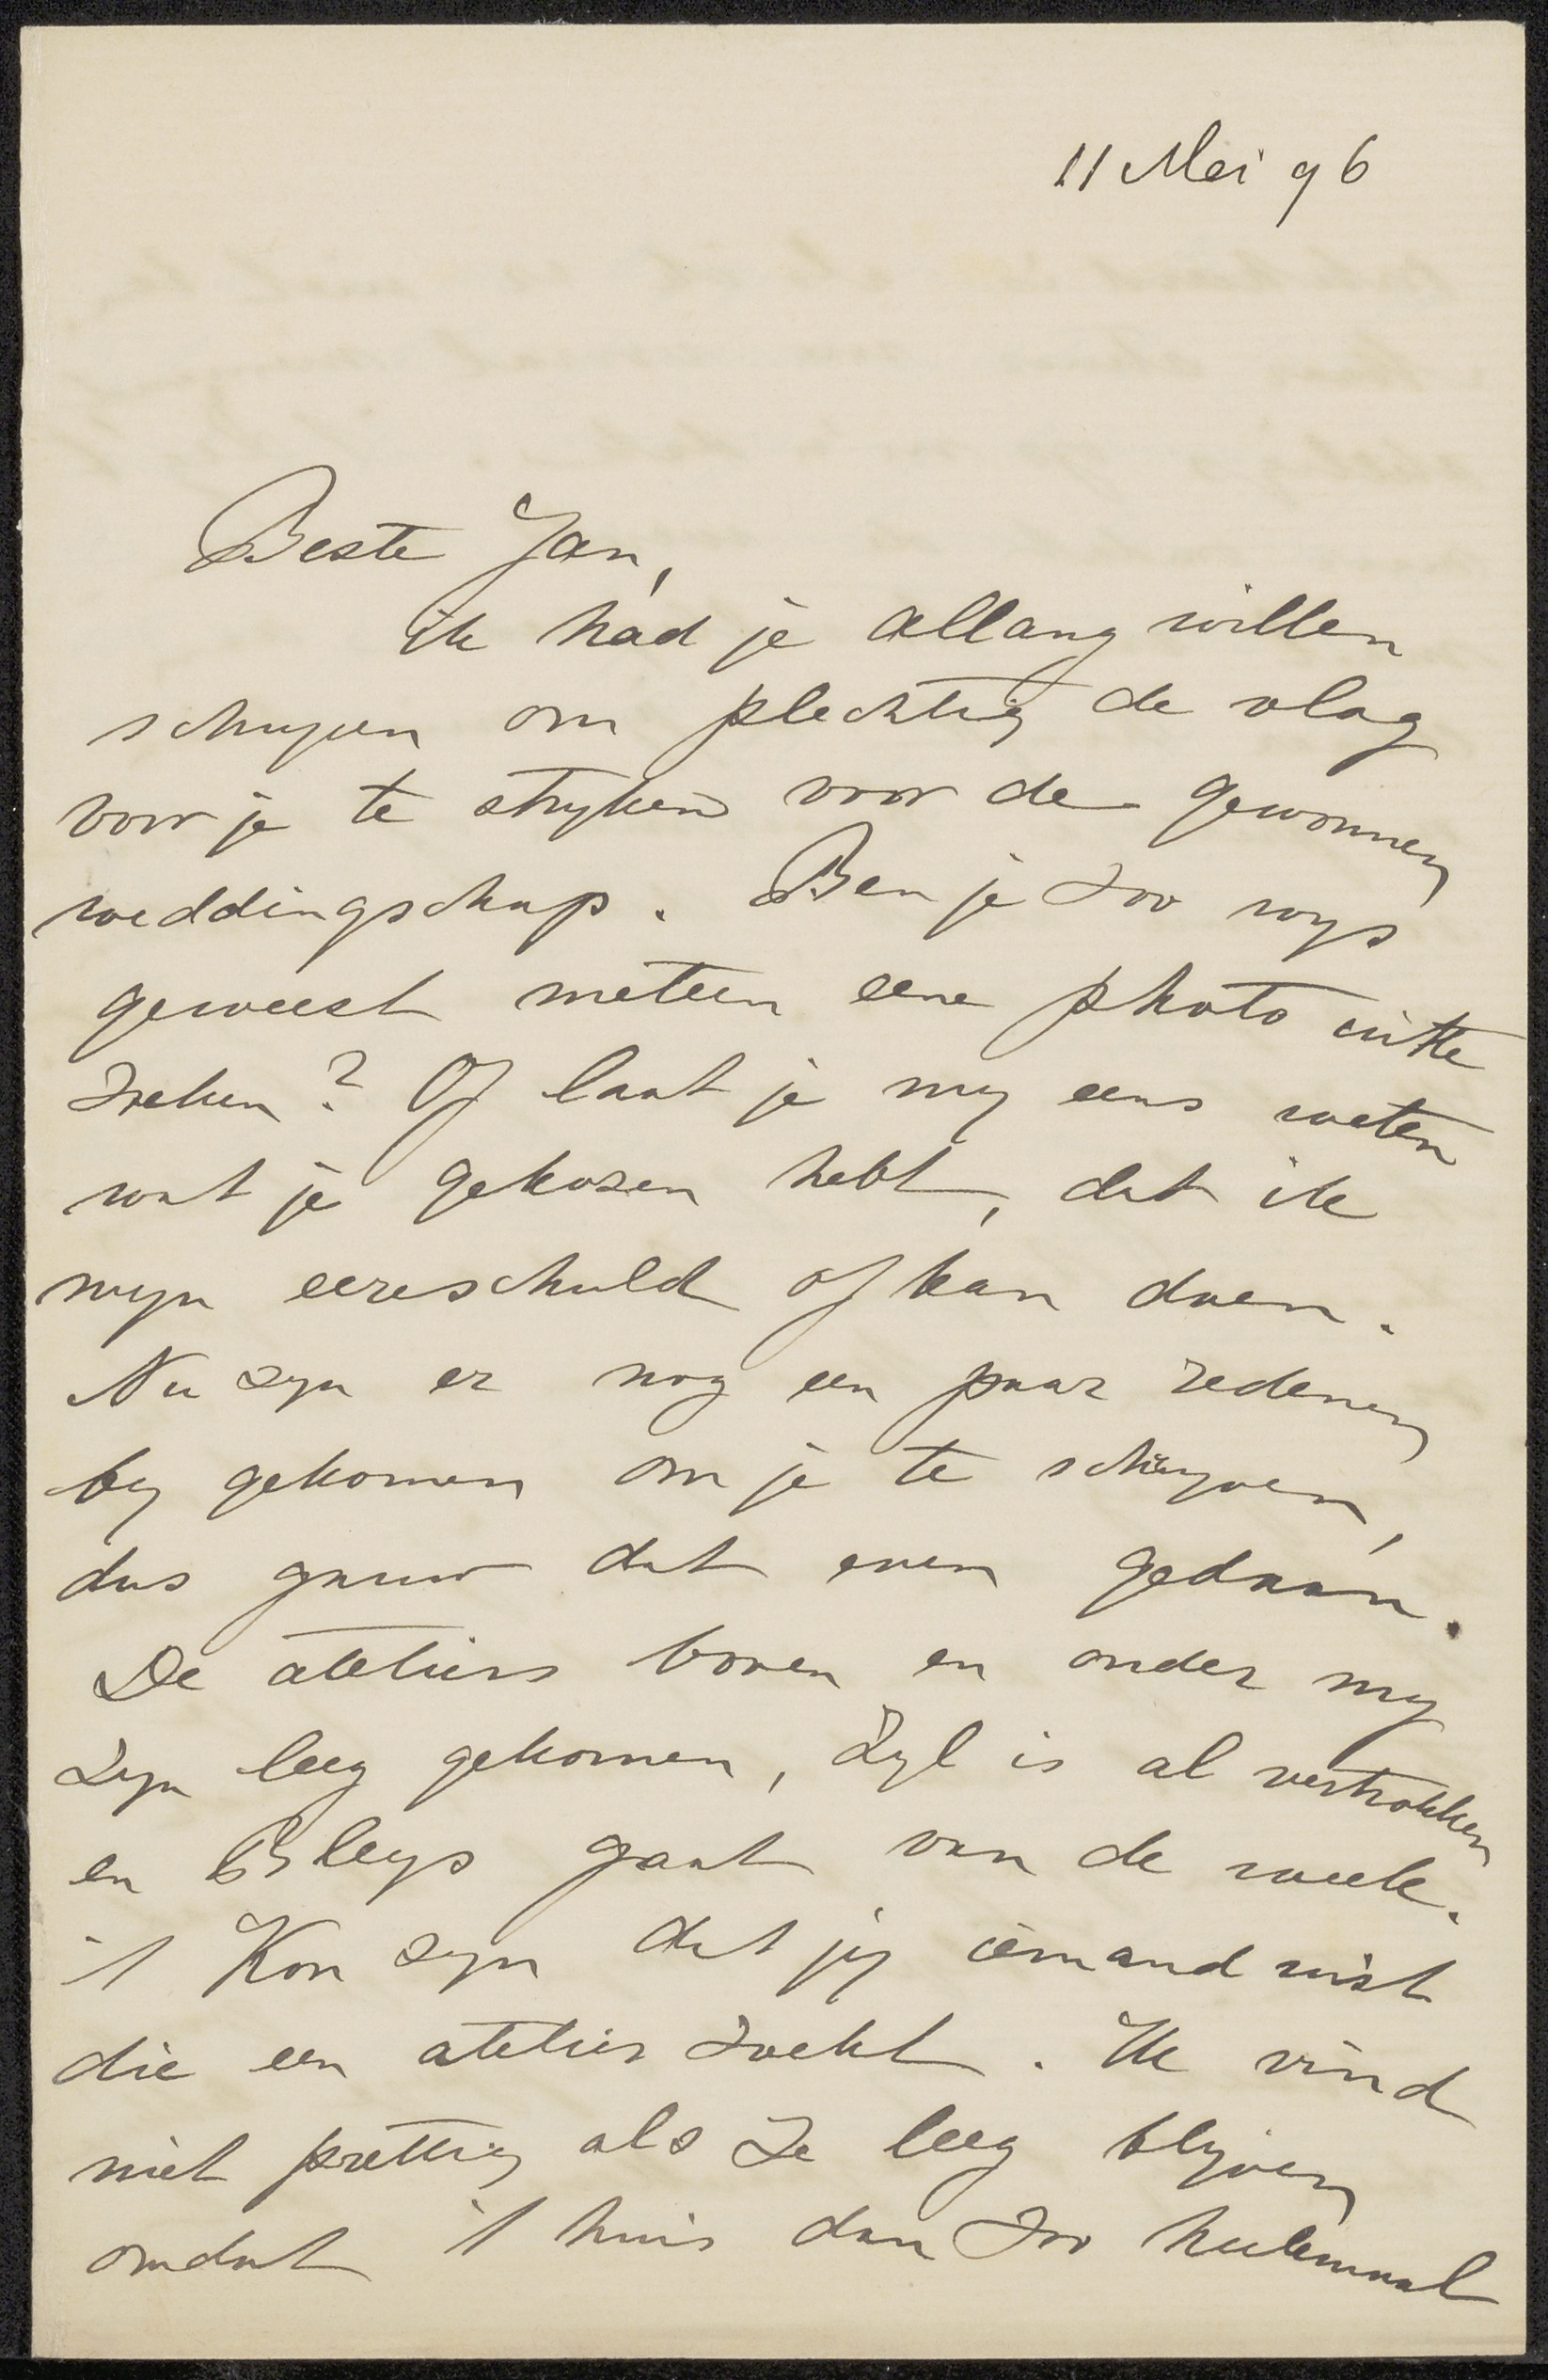 11 Mei 96
Beste Jan,
ik had je allang willen
schrijven om plechtig de vlag
voor je te stryken voor de gewonnen
weddingschap. Ben je zoo wys
geweest meteen eene photo uit te
zoeken? Of laat je my eens weten
wat je gekozen hebt, dat ik
myn eereschuld af kan doen.
Nu zyn er nog een paar redenen
by gekomen om je te schryven,
dus gauw dat even gedaan.
De ateliers boven en onder my
zyn leeg gekomen, Zyl is al vertrokken
en Bleys gaat van de week.
't Kon zyn dat jy iemand wist
die een atelier zoekt. Ik vind
niet prettig als ze leeg blyven
omdat 't huis dan zoo heelemaal